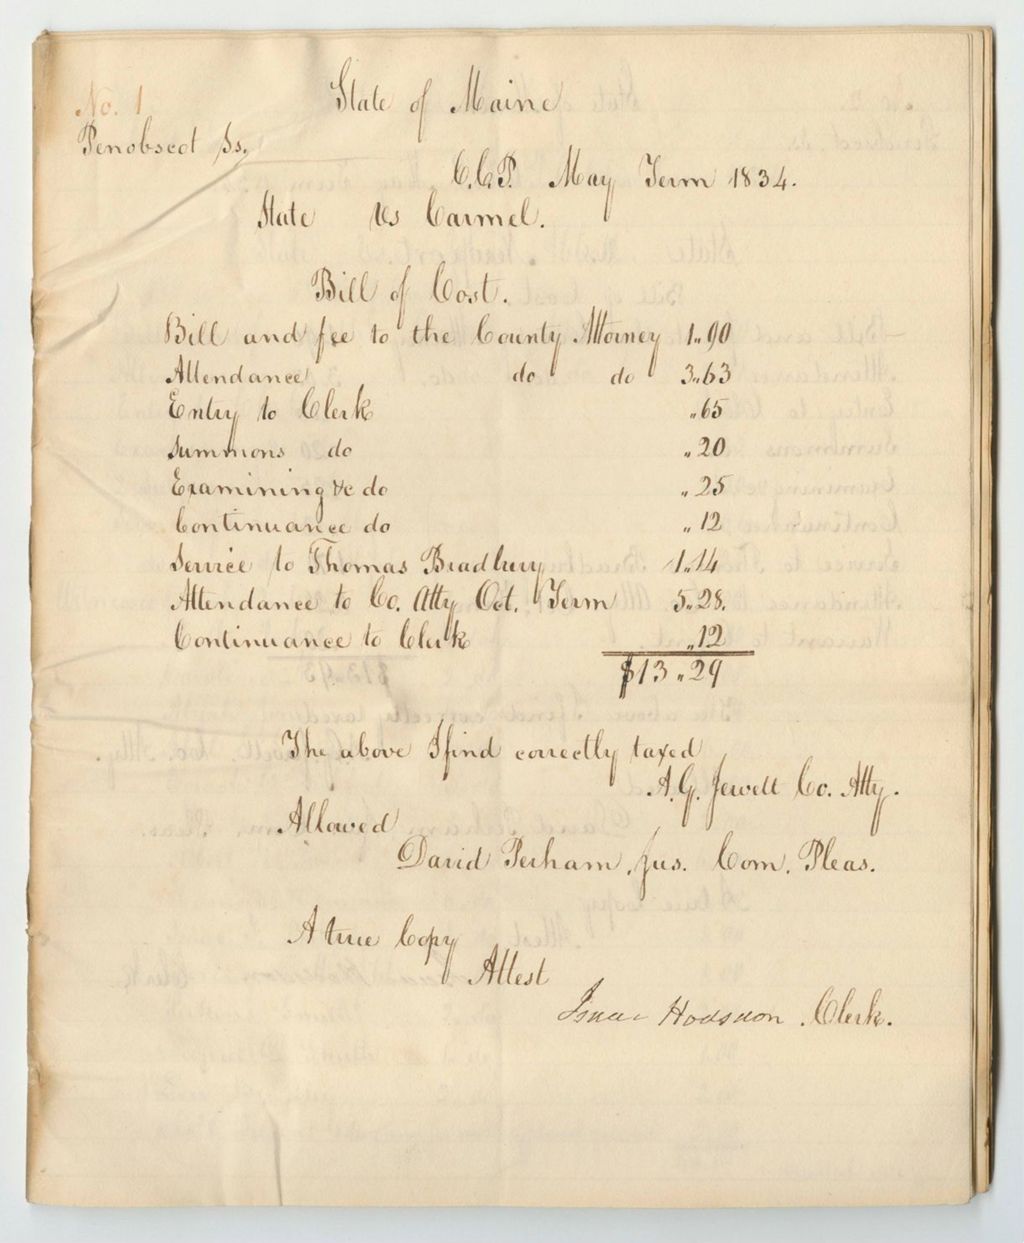 No. 1
State of Maine
Penobscot Ss.
C.C.P. May Term 1834.
State vs Carmel.
Bill of Cost.
Bill and fee to the County Attorney 1.,90
Attendance do do 3.,63
Entry to Clerk .,65
Summons do .,20
Examining &c do .,25
Continuance do .,12
Service to Thomas Bradbury 1.,14
Attendance to Co. Atty Oct. Term 5.,28.
Continuance to Clerk .,12
$13.,29
The above I find correctly taxed
A.G. Jewett Co. Atty.
Allowed
David Perham, Jus. Com. Pleas.
A true Copy
Attest
Isaac Hodsdon. Clerk.